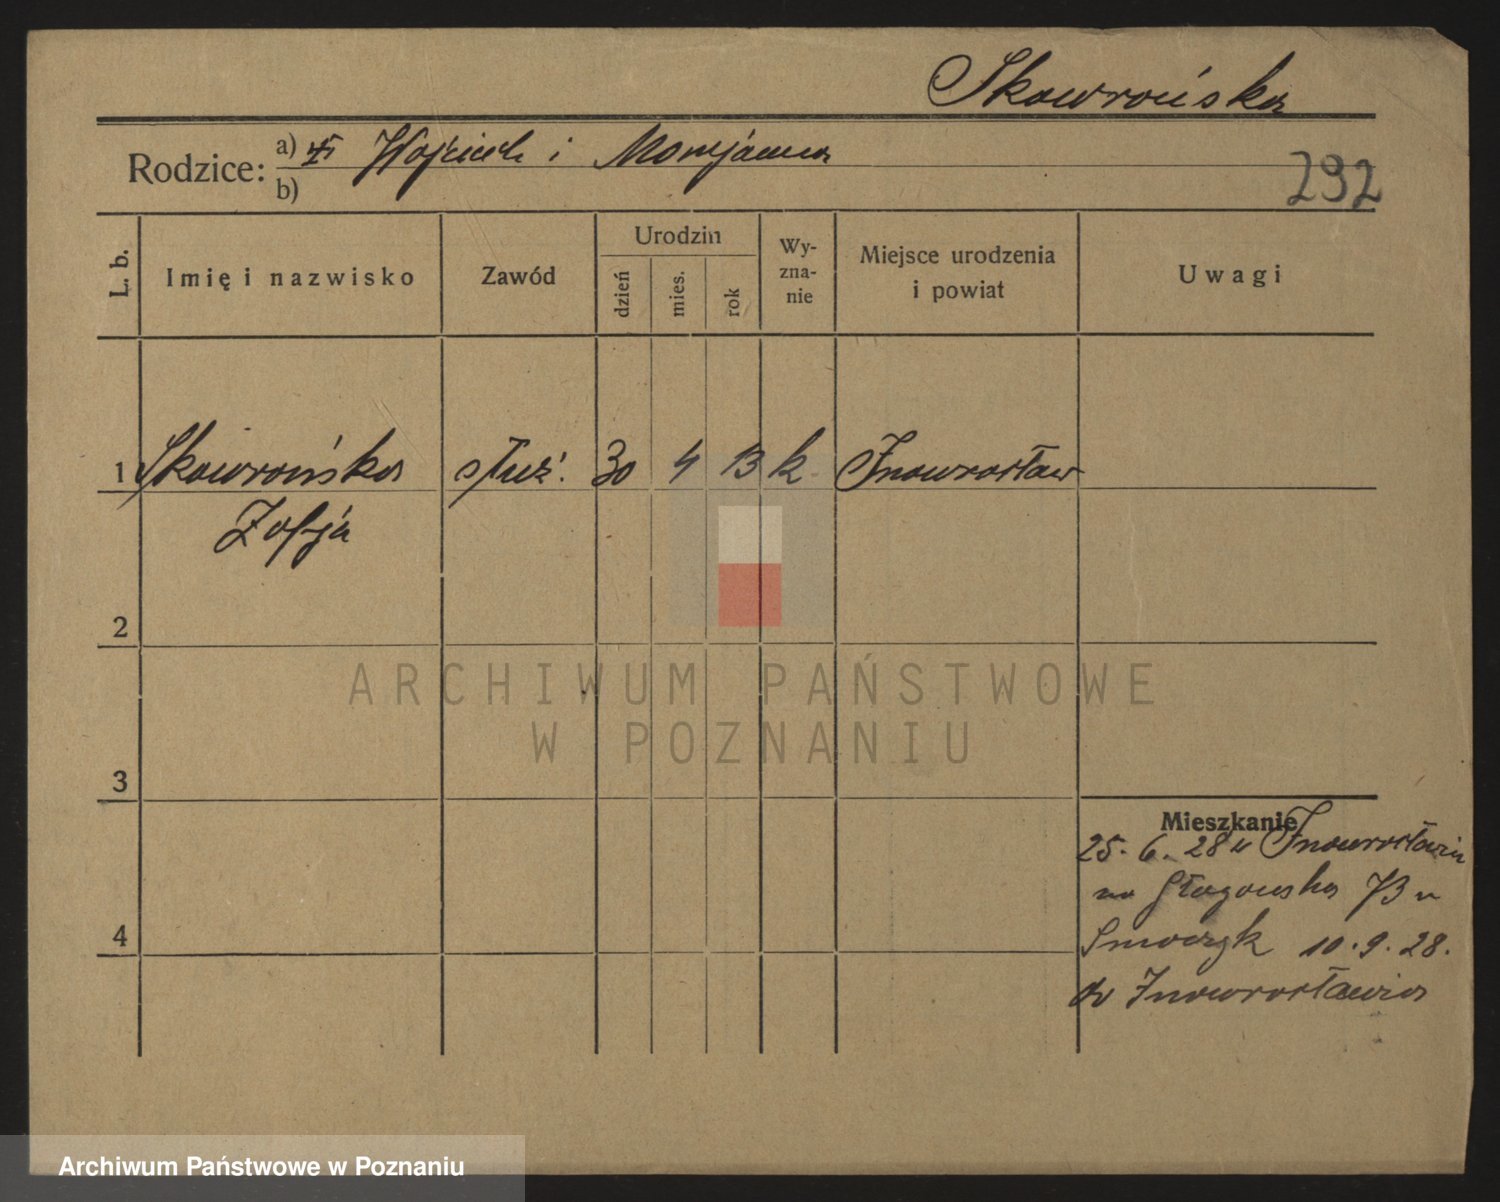 Skowrońska
Rodzice: a) Wojciech i Marjanna
b)
292
L. b.
Imię i nazwisko
Zawód
Urodzin
dzień
mies.
rok
Wy-
zna-
nie
Miejsce urodzenia
i powiat
Uwagi
1 Skowrońska służ. 30 4 13 k Inowrocław
Zofja
2
3
4
Mieszkanie
25. 6. 28 Inowrocławiu
na Głogowska 73 u
Smoczyk 10. 9. 28.
do Inowrocławia
ARCHIWUM PAŃSTWOWE
W POZNANIU
Archiwum Państwowe w Poznaniu